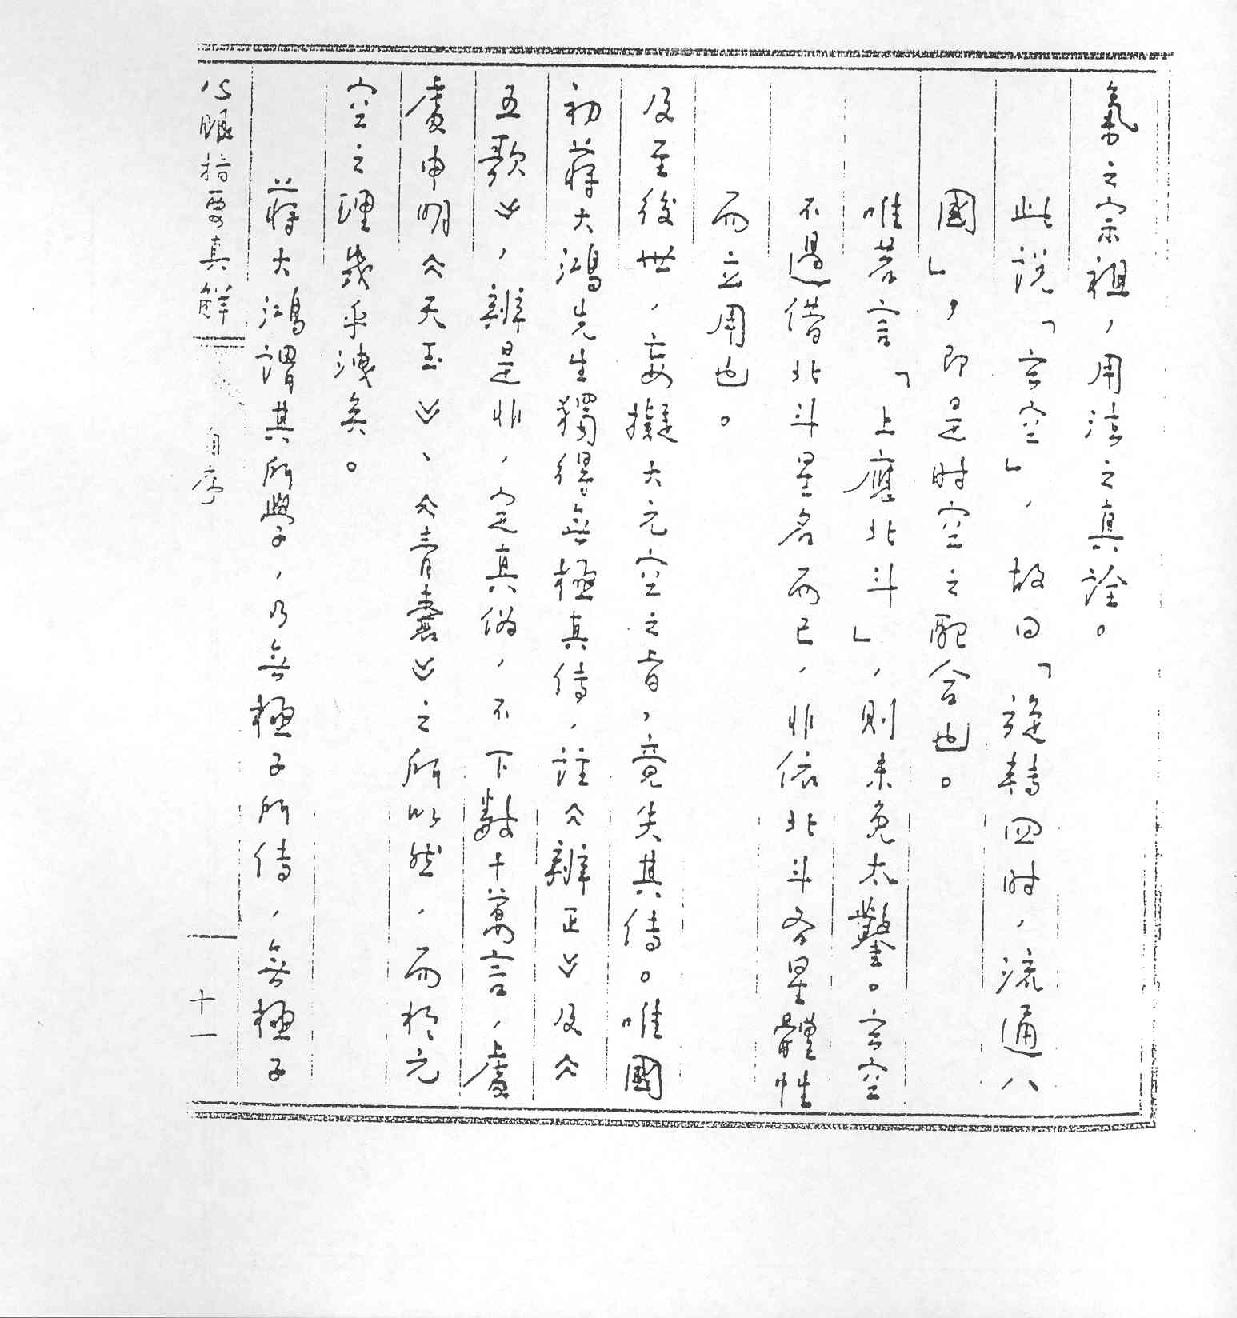 氣之宗祖，用法之真詮。
此說「言空」，故曰「旋轉四時，流通八
國」，即是時空之配合也。
唯若言「上應北斗」，則未免太鑿。言空
不過借北斗星名而已，非依北斗各星體性
而立用也。
及至後世，妄擬大元空之旨，竟失其傳。唯國
初蔣大鴻先生獨得無極真傳，註《辨正》及《
五歌》，辨是非，定真偽，不下數十萬言，處
處申明《天玉》、《青囊》之所以然，而於元
空之理幾乎洩矣。
蔣大鴻謂其所學，乃無極子所傳，無極子
心眼指要真解
自序
十一